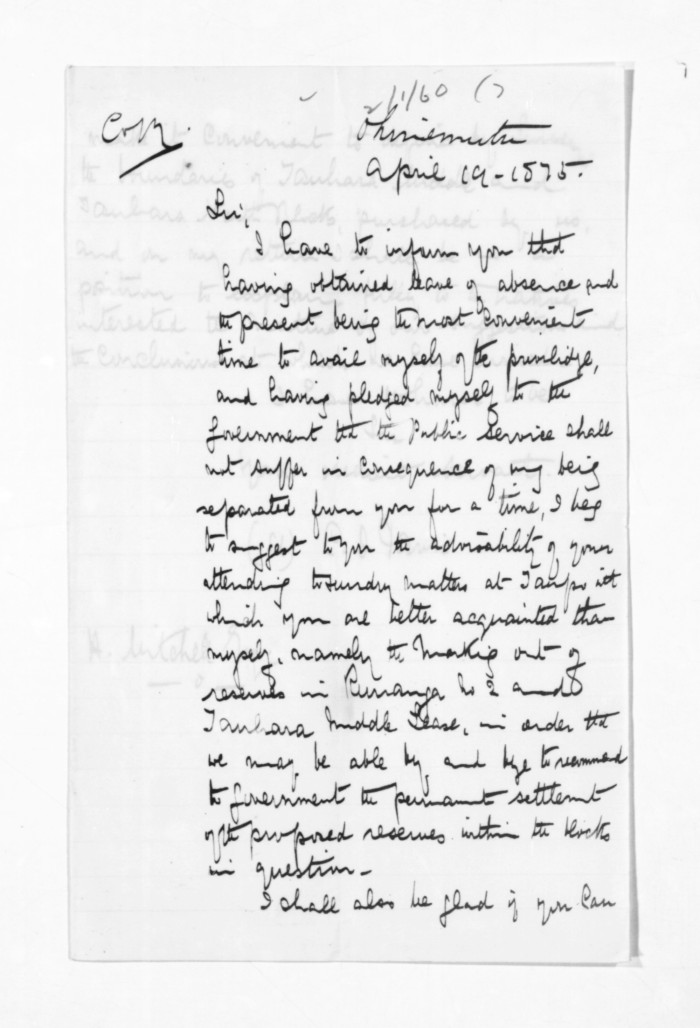 2/1/60 ( )
Copy. Ohinemutu
April 19-1875.
Sir,
I have to inform you that
having obtained leave of absence and
the present being the most convenient
time to avail myself of the priviledge,
and having pledged myself to the
Government that the Public Service shall
not suffer in consequence of my being
separated from you for a time, I beg
to suggest to you the advisability of your
attending to sundry matters at Taupo with
which you are better acquainted than
myself, namely the marking out of
reserves in Runanga No 2 and
Tauhara Middle Lease, in order that
we may be able by and bye to recommend
to Government the permanent settlement
of the proposed reserves within the blocks
in question-
I shall also be glad if you can
H. Mitchell